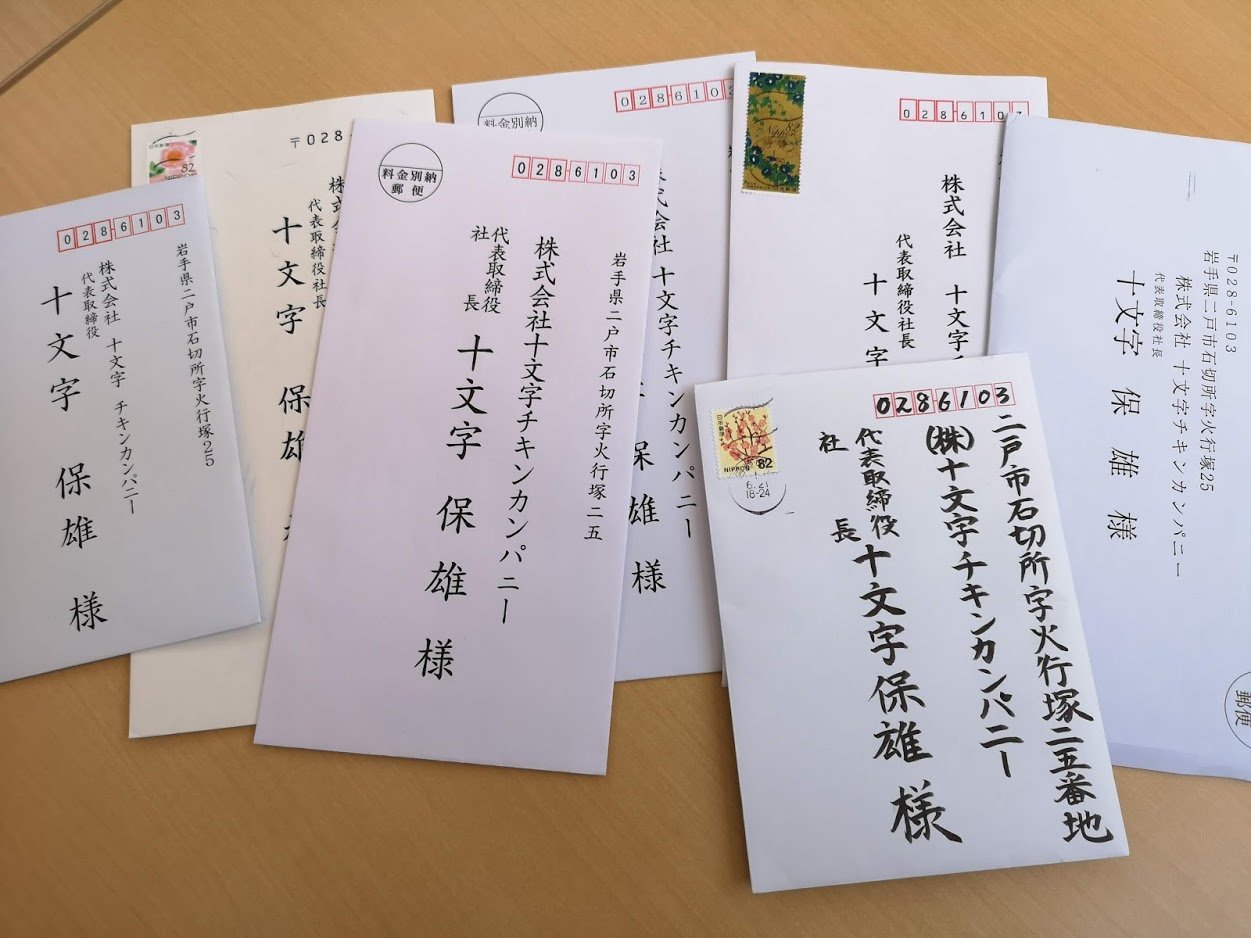 0286103
岩手県二戸市石切所字火行塚25
株式会社 十文字 チキンカンパニー
代表取締役
十文字 保雄 様
82
〒028
株
代表取締役社長
十文字 保雄
料金別納
郵便
0286103
岩手県二戸市石切所字火行塚二五
株式会社十文字チキンカンパニー
代表取締役
社長
十文字 保雄 様
料金別納
028-6103
株式会社 十文字チキンカンパニー
保雄 様
82
Nippon
0286103
株式会社 十文字
代表取締役社長
十文字
日本郵便
NIPPON 82
6.21
18-24
0286103
二戸市石切所字火行塚二五番地
(株)十文字チキンカンパニー
代表取締役
社長
十文字保雄 様
〒028-6103
岩手県二戸市石切所字火行塚25
株式会社 十文字チキンカンパニー
代表取締役社長
十文字 保雄 様
郵便